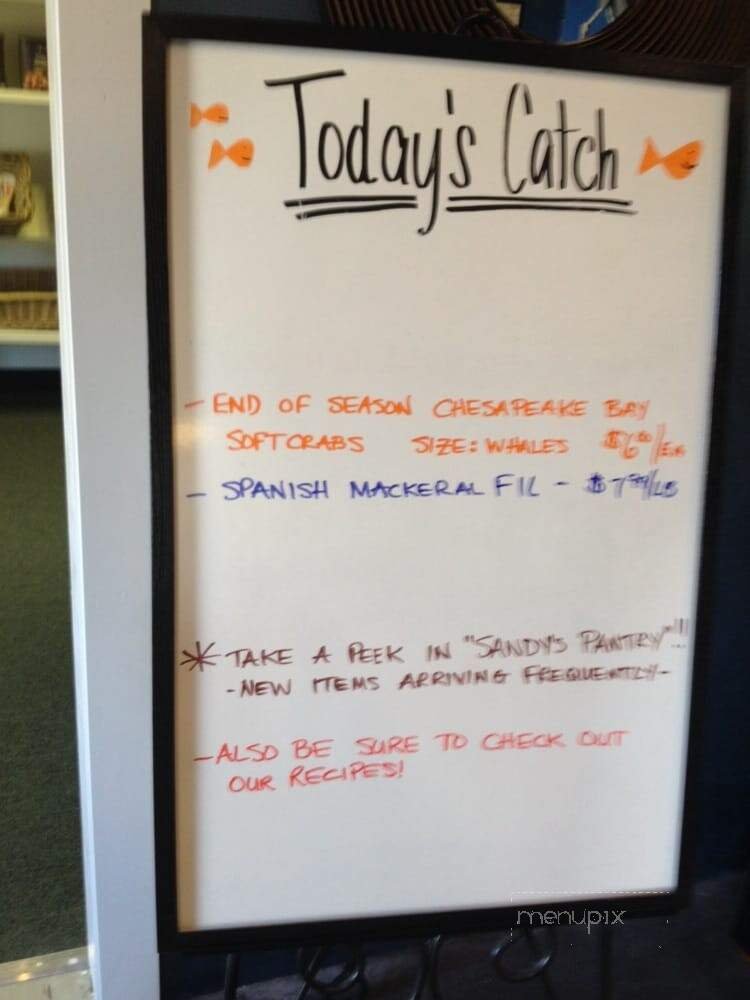 Today's Catch
- END OF SEASON CHESAPEAKE BAY
SOFTCRABS SIZE: WHALES $6.00/EA
- SPANISH MACKERAL FIL - $7.99/LB
* TAKE A PEEK IN "SANDY'S PANTRY"!!!
- NEW ITEMS ARRIVING FREQUENTLY -
- ALSO BE SURE TO CHECK OUT
OUR RECIPES!
menupix